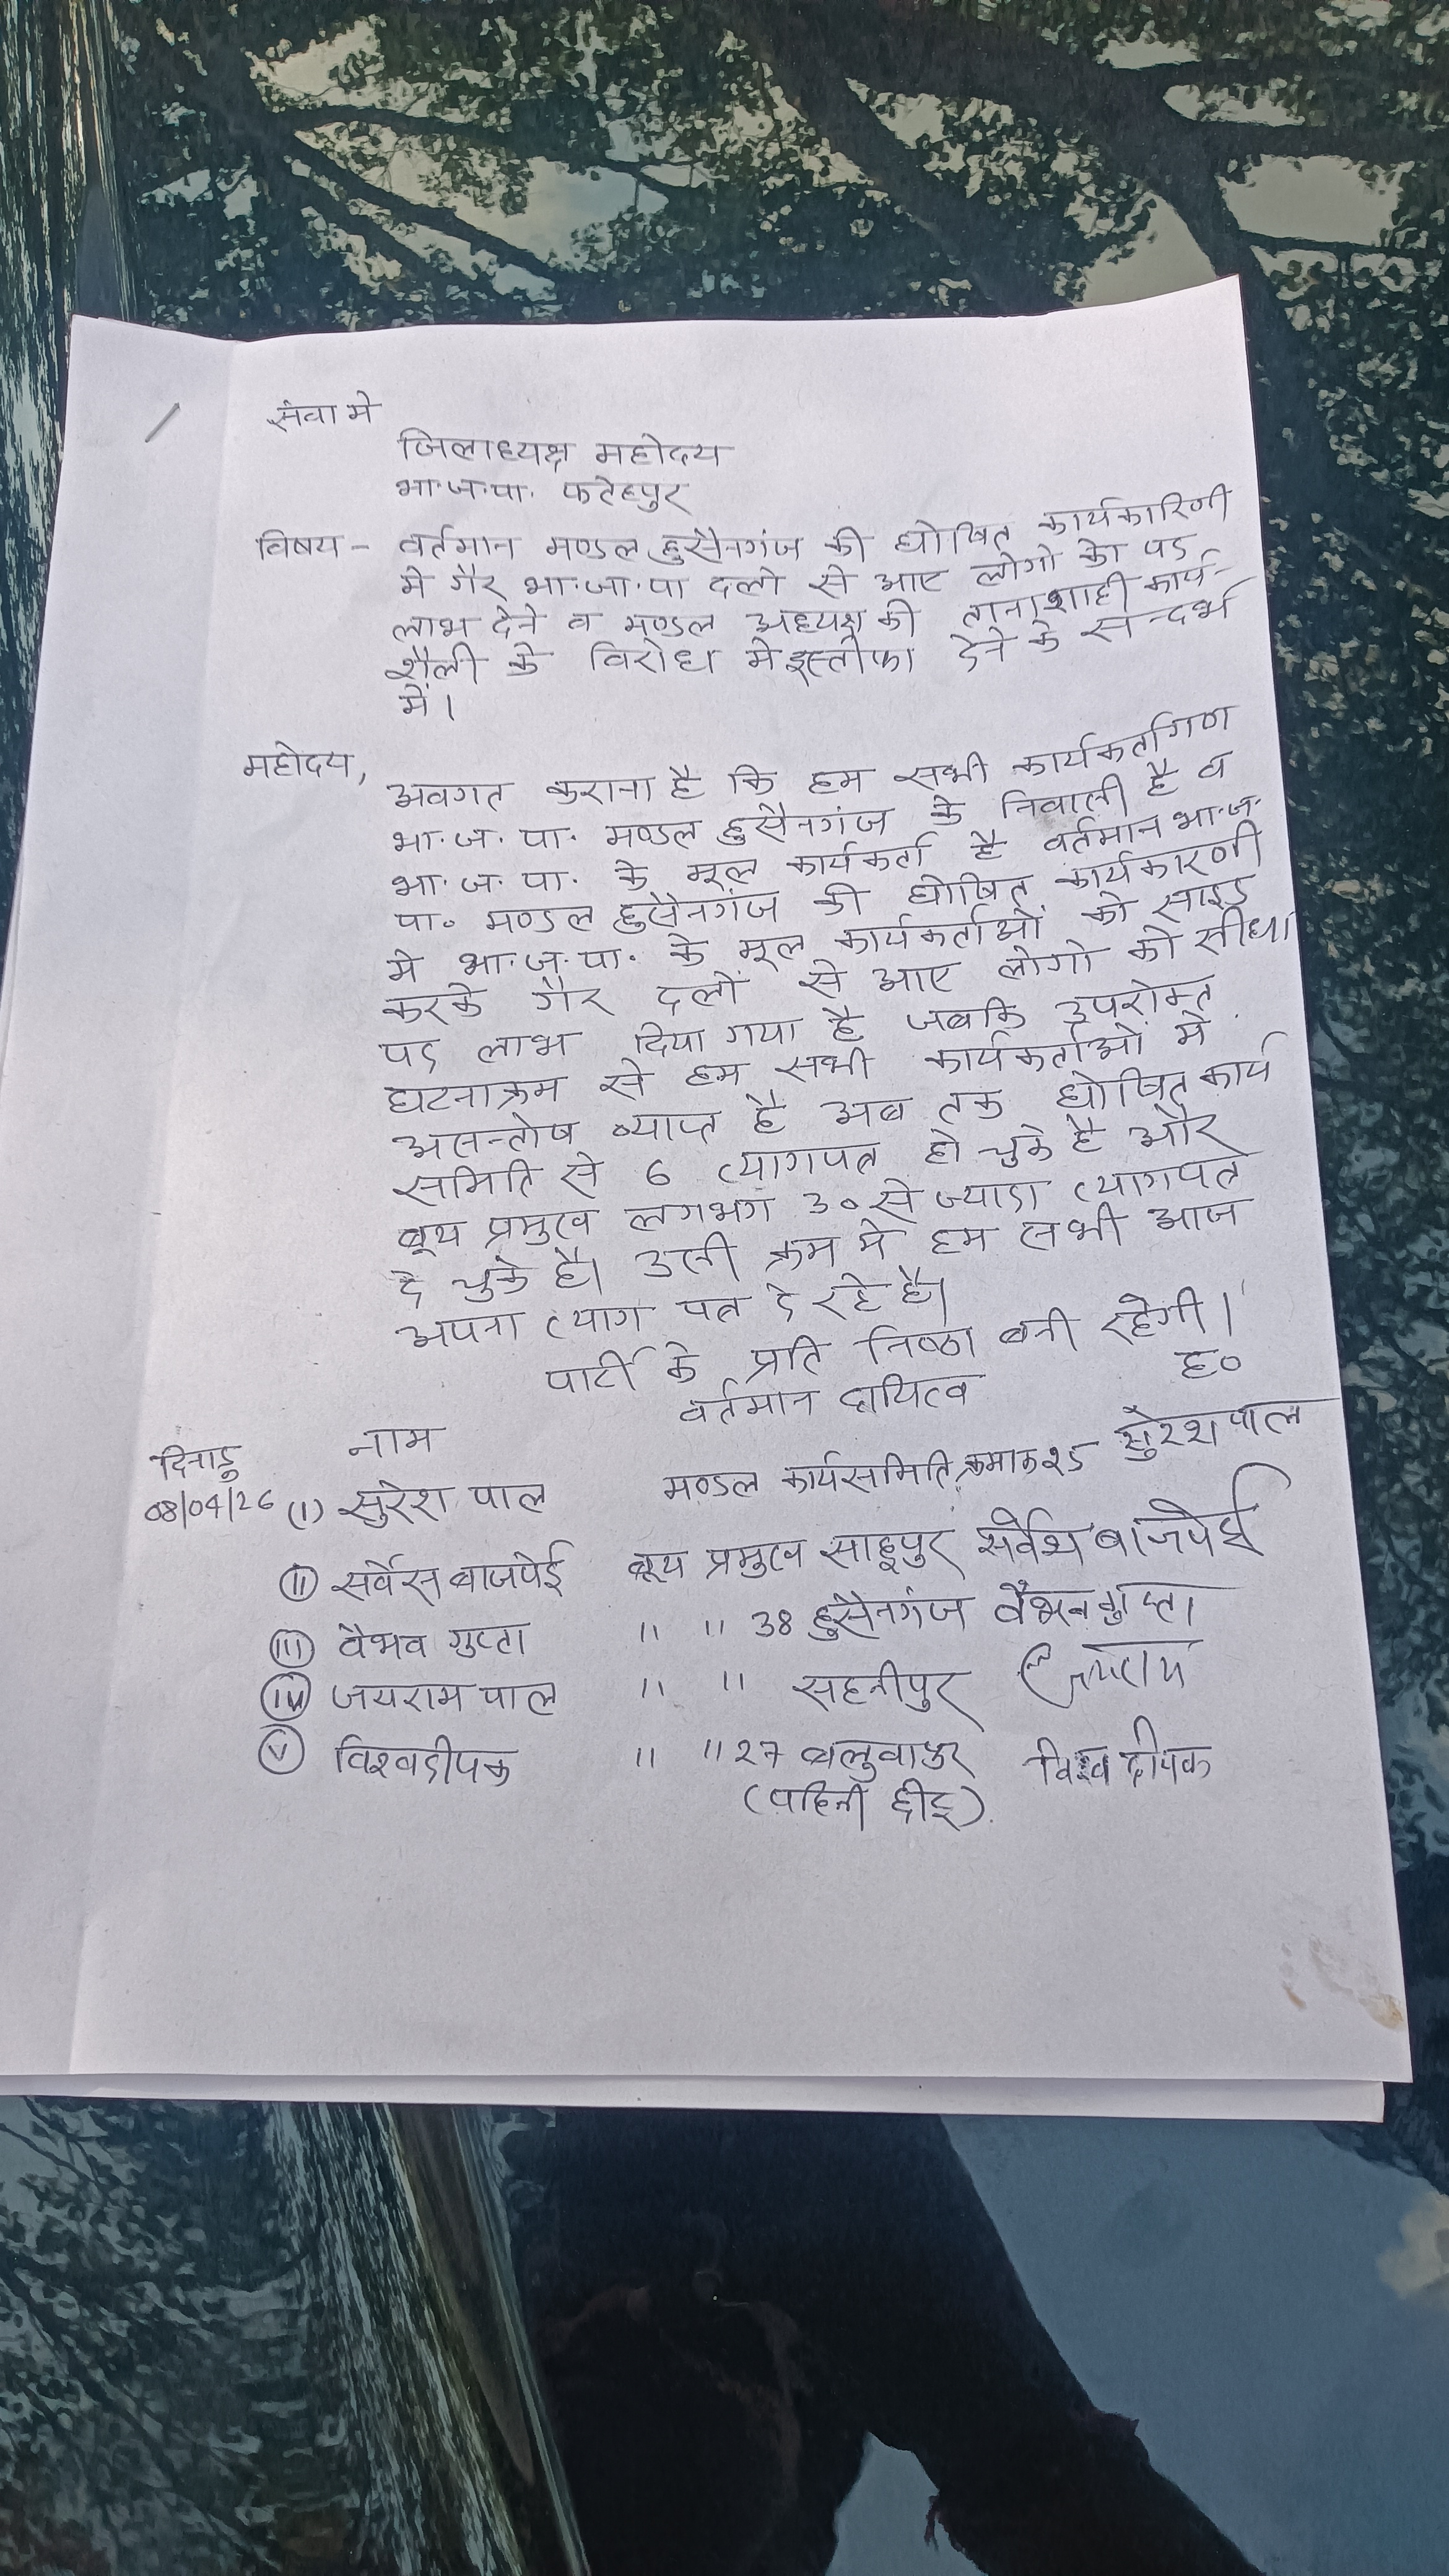 सेवा मे
जिलाध्यक्ष महोदय
भा.ज.पा. फतेहपुर
विषय - वर्तमान मण्डल हुसैनगंज की घोषित कार्यकारिणी
मे गैर भा.जा.पा दलो से आए लोगो को पद
लाभ देने व मण्डल अध्यक्ष की तानाशाही कार्य-
शैली के विरोध मे इस्तीफा देने के सन्दर्भ
में।
महोदय,
अवगत कराना है कि हम सभी कार्यकर्तागण
भा.ज.पा. मण्डल हुसैनगंज के निवासी है व
भा.ज.पा. के मूल कार्यकर्ता है वर्तमान भा.ज.
पा० मण्डल हुसैनगंज की घोषित कार्यकारणी
मे भा.ज.पा. के मूल कार्यकर्ताओं को साइड
करके गैर दलों से आए लोगो को सीधा
पद लाभ दिया गया है जबकि उपरोक्त
घटनाक्रम से हम सभी कार्यकर्ताओं मे
असन्तोष व्याप्त है अब तक घोषित कार्य
समिति से 6 त्यागपत्र हो चुके है और
बूथ प्रमुख लगभग 30 से ज्यादा त्यागपत्र
दे चुके है। उसी क्रम मे हम सभी आज
अपना त्याग पत्र दे रहे है।
पार्टी के प्रति निष्ठा बनी रहेगी।
नाम वर्तमान दायित्व ह०
दिनाङ्क
08/04/26 (I) सुरेश पाल मण्डल कार्यसमिति, सुरेश पाल
(II) सर्वेस बाजपेई बूथ प्रमुख साहूपुर सर्वेश बाजपेई
(III) वैभव गुप्ता " " 38 हुसैनगंज वैभव गुप्ता
(IV) जयराम पाल " " सहनीपुर जयराम
(V) विश्वदीपक " " 27 विश्व दीपक